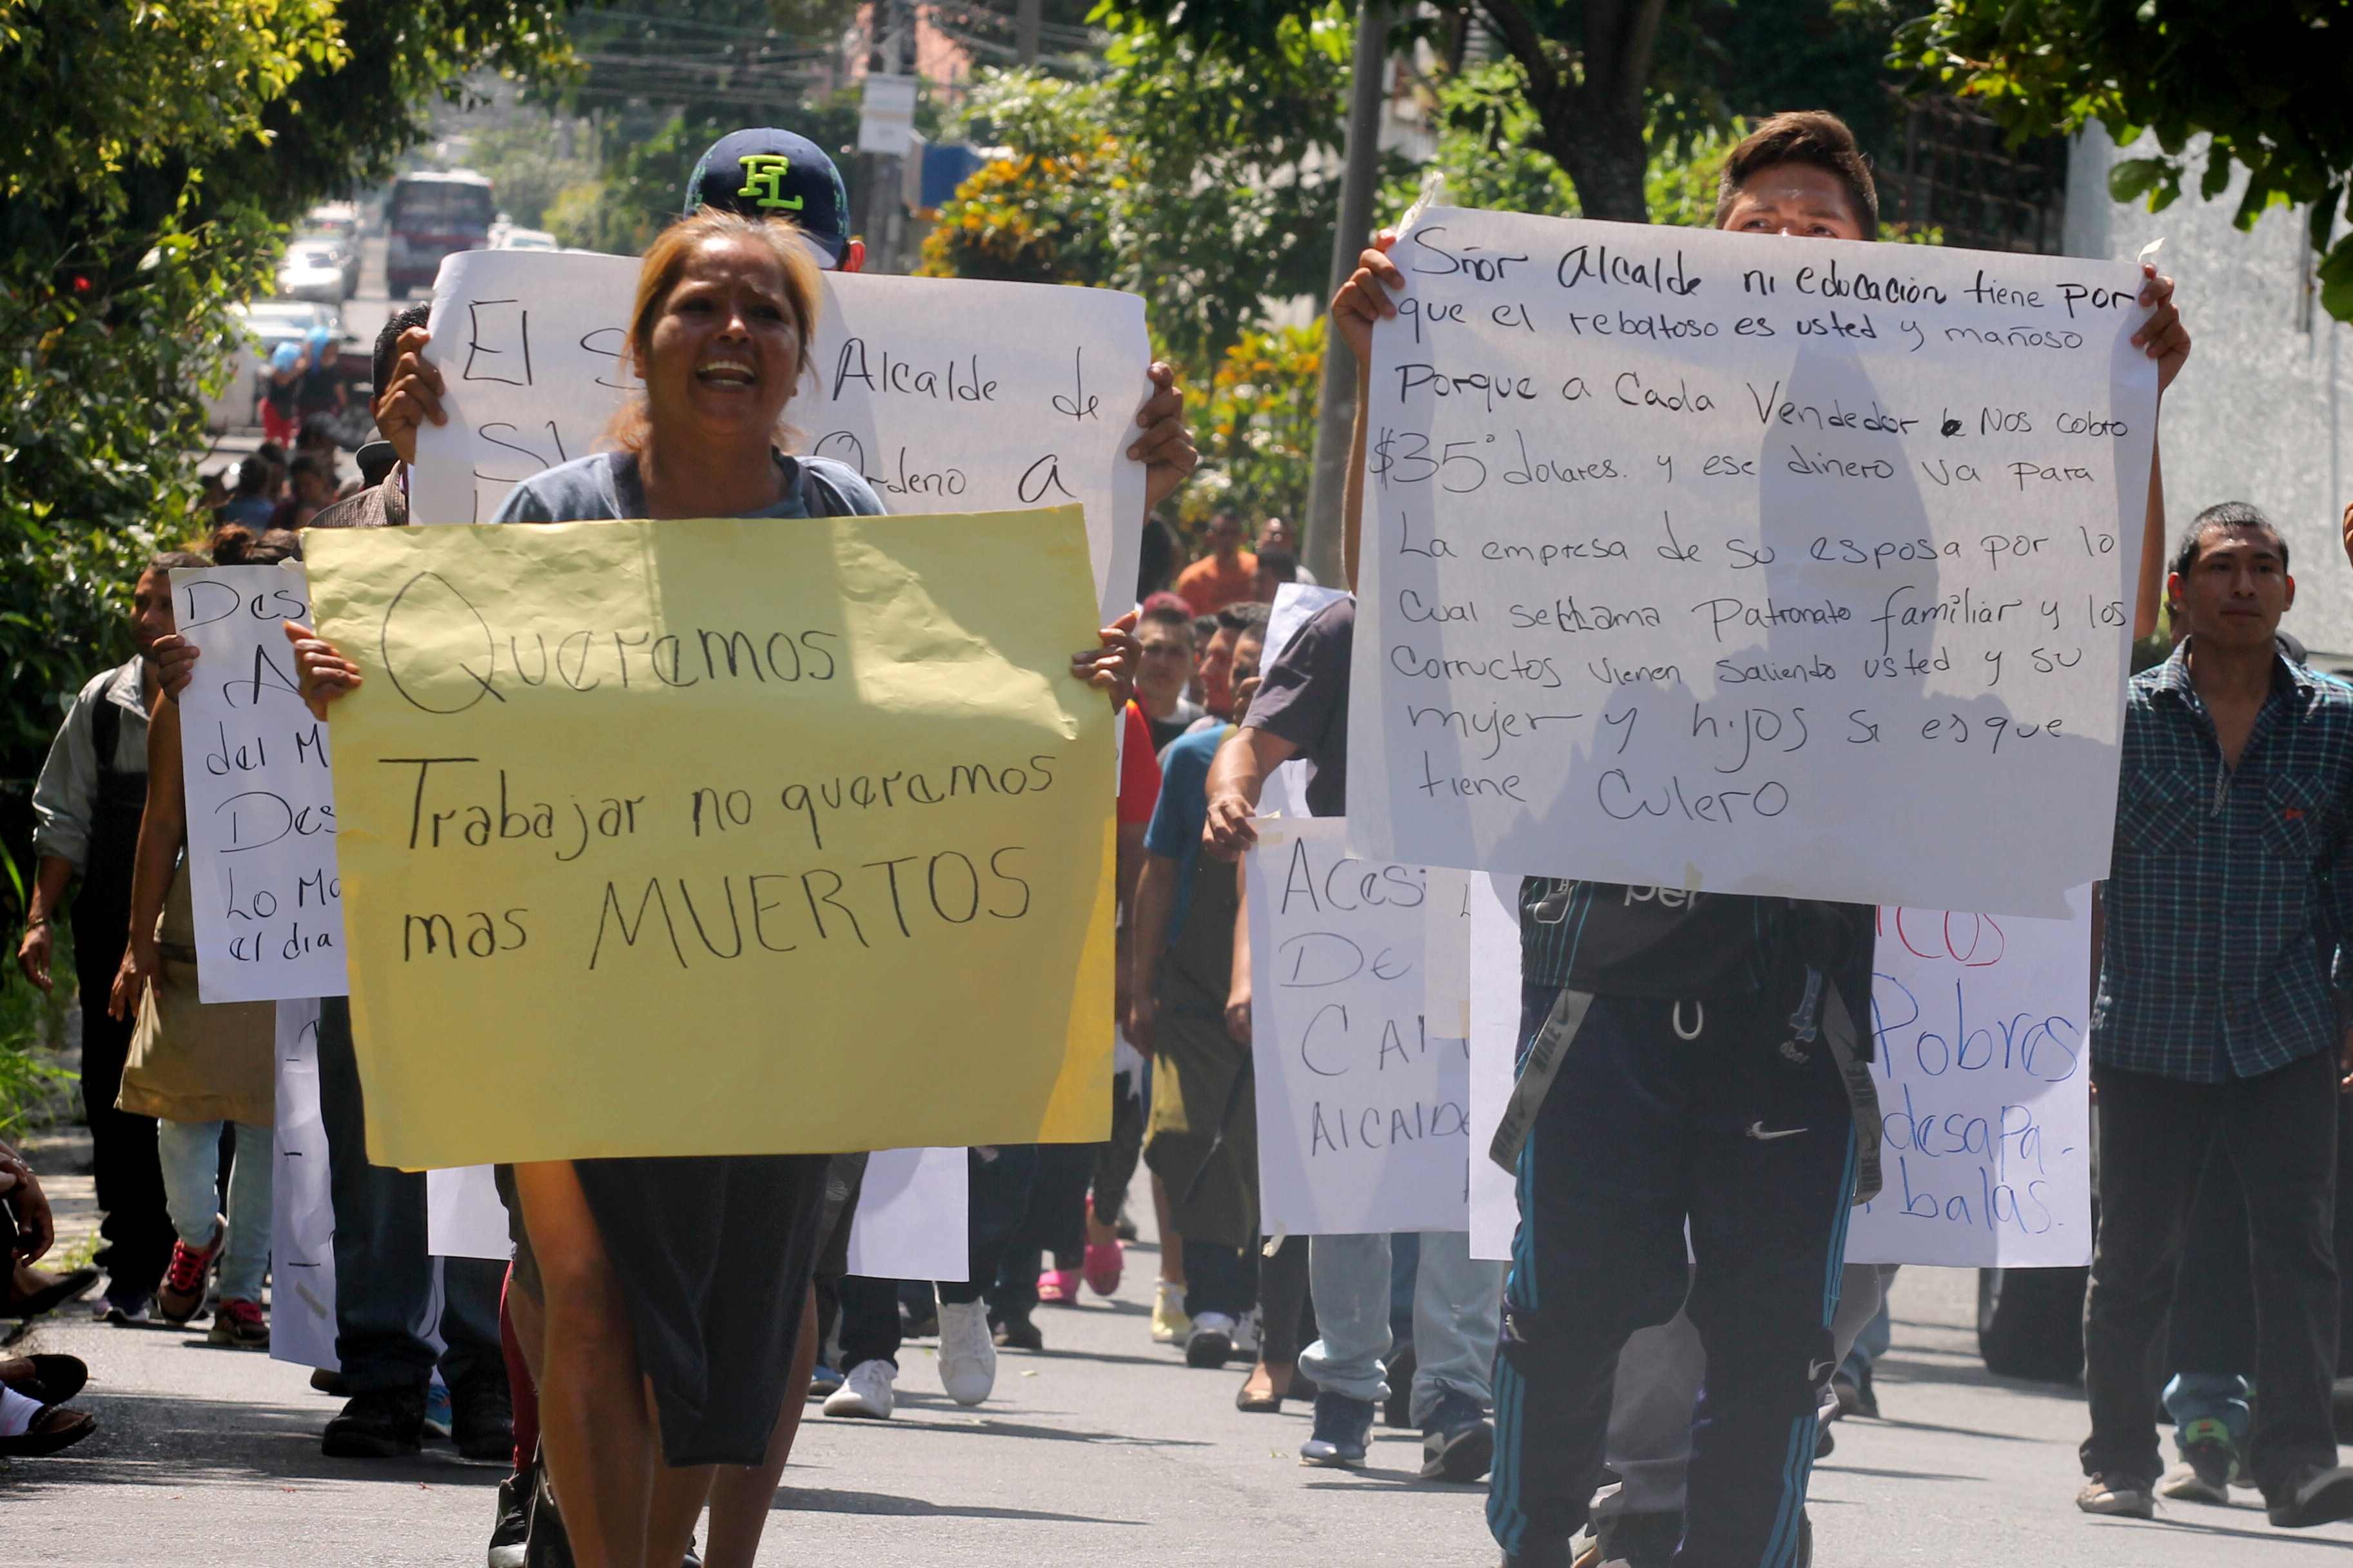 FL
El Alcalde de
Ordeno a
Queremos
Trabajar no queramos
mas MUERTOS
Des
A
del M
Des
Lo Mo
el dia
Sñor Alcalde ni educación tiene por
que el reboltoso es usted y mañoso
Porque a Cada Vendedor Nos cobro
$35° dolares. y ese dinero va para
La empresa de su esposa por lo
Cual se llama Patronato familiar y los
Corructos vienen saliendo usted y su
mujer y hijos si es que
tiene Culero
Acesi
DE
CAM
AlCAlDe
icos
Pobres
desapa-
balas.
NIKE